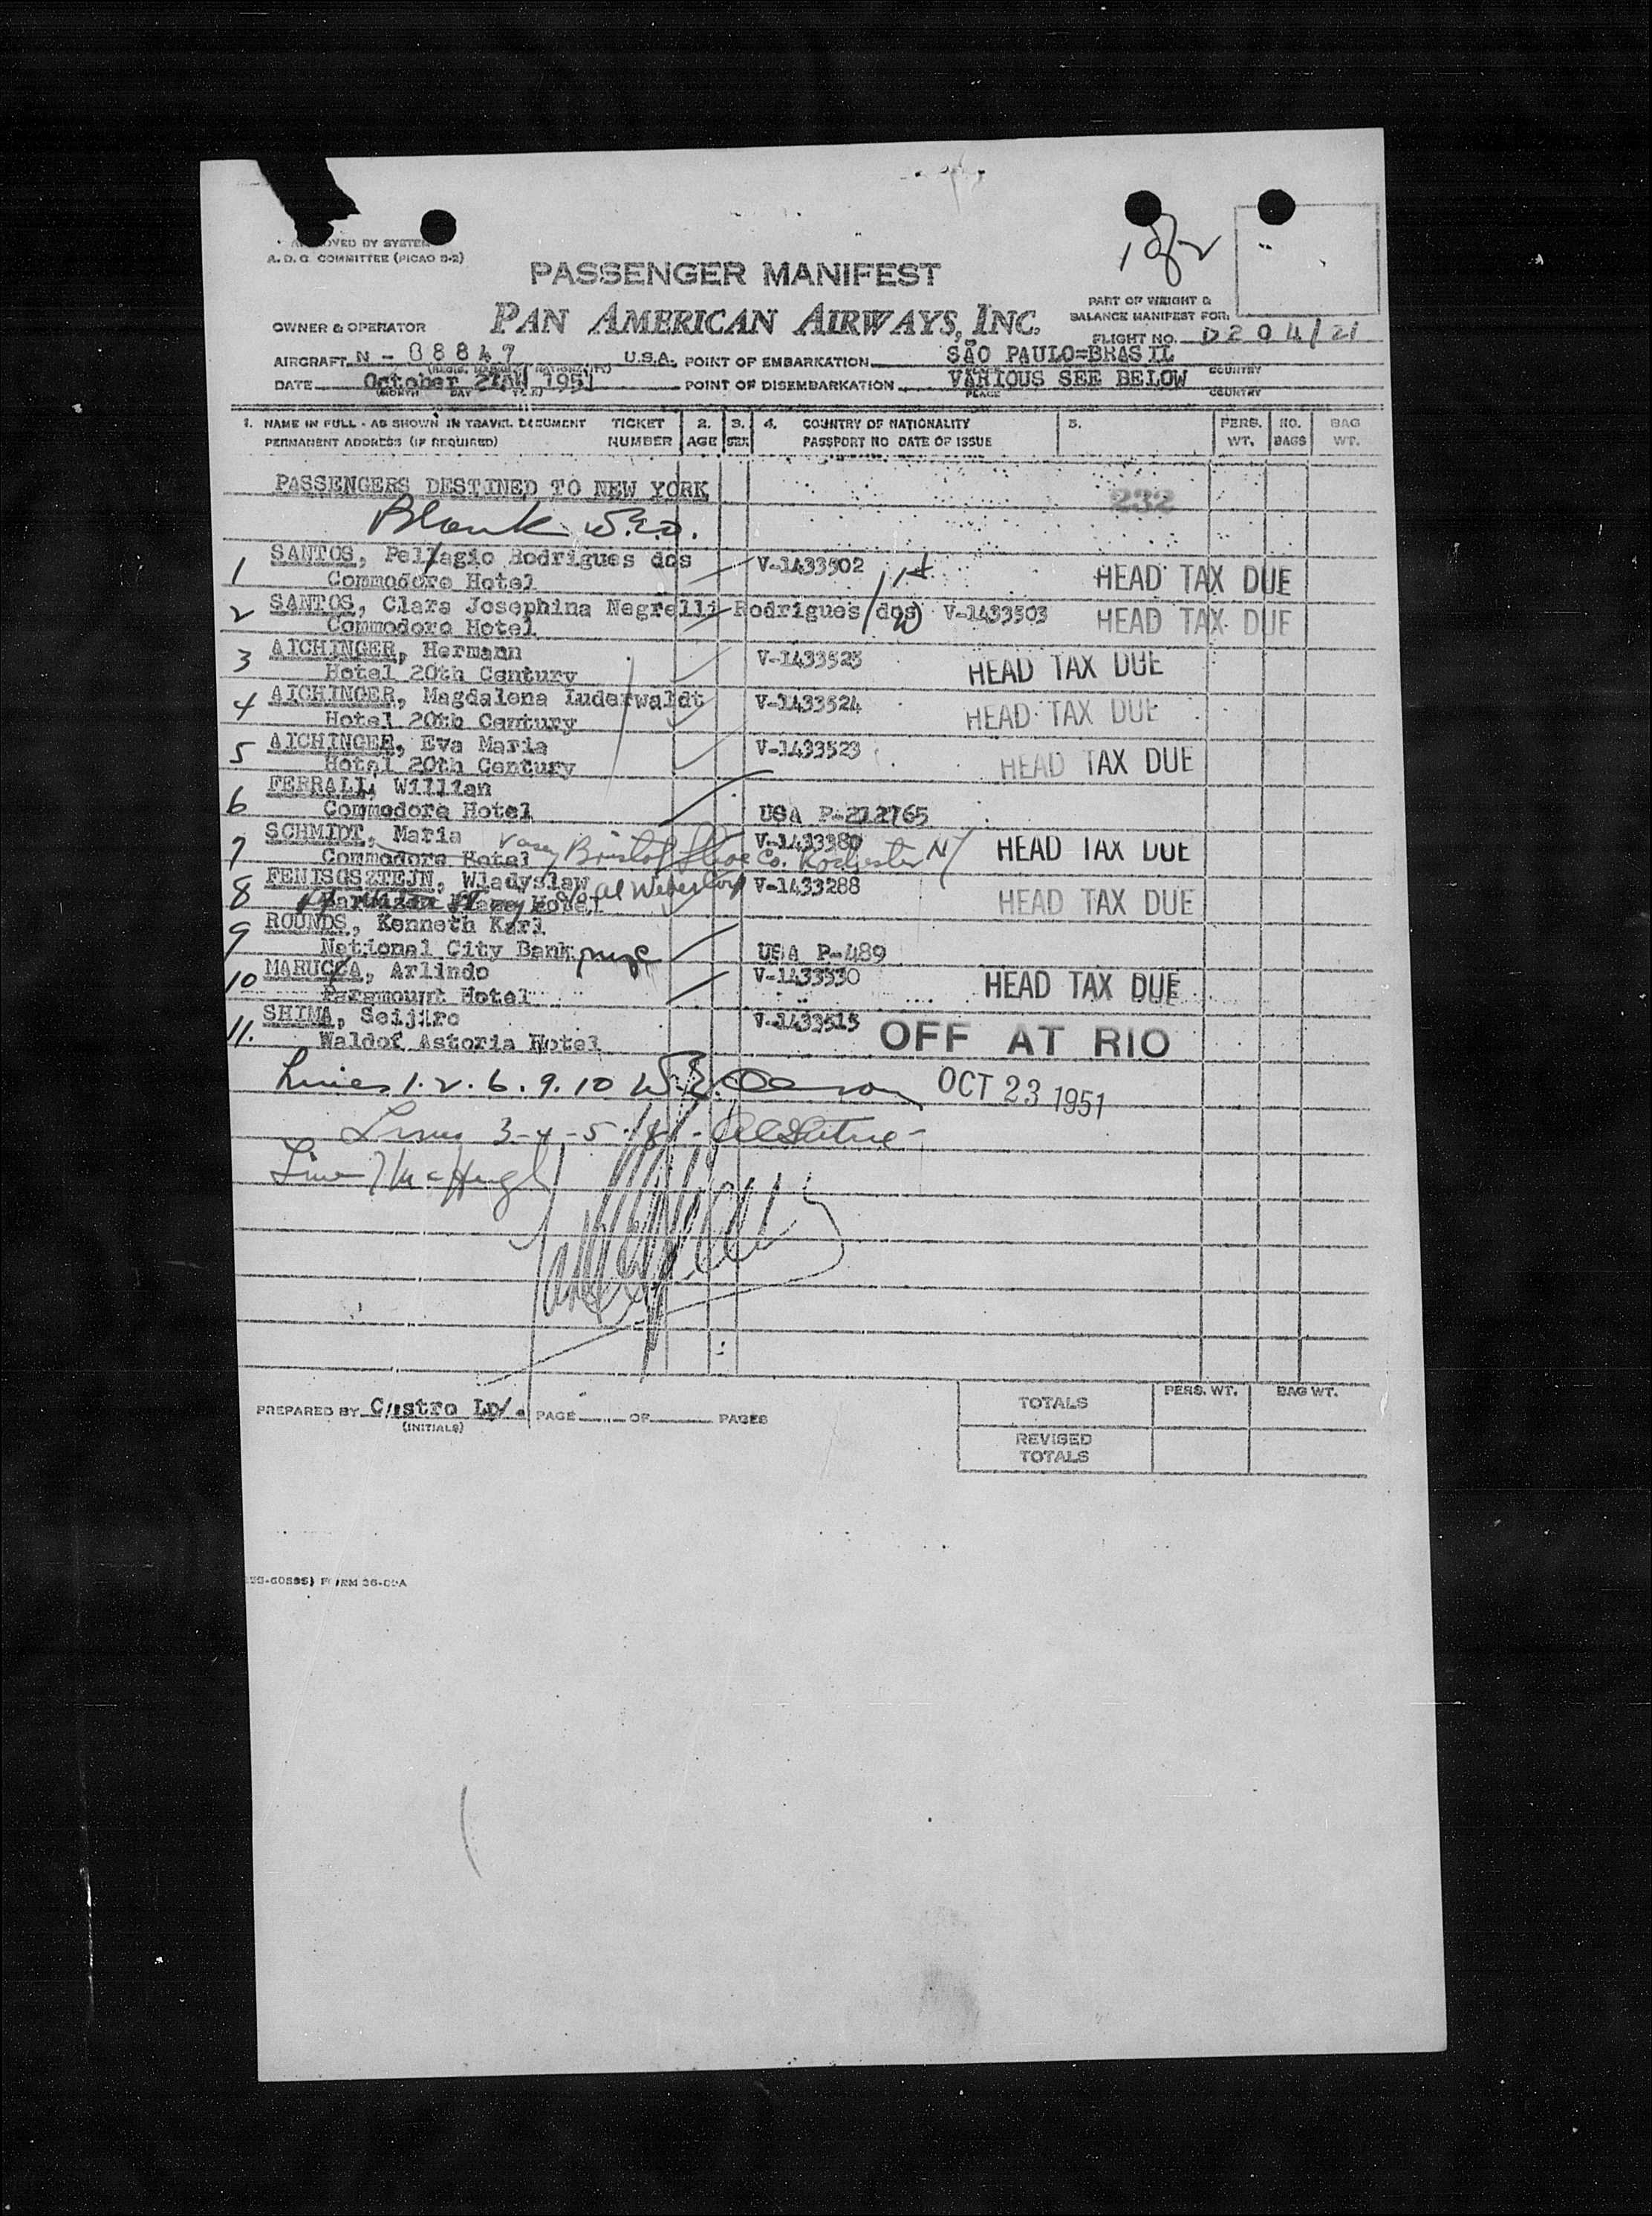 APPROVED BY SYSTEM
A. D. C. COMMITTEE (PICAO 9-2)
PASSENGER MANIFEST
PART OF WEIGHT &
BALANCE MANIFEST FOR:
OWNER & OPERATOR
PAN AMERICAN AIRWAYS, INC.
FLIGHT NO. D204/21
AIRCRAFT N - 88847 U.S.A. POINT OF EMBARKATION SÃO PAULO=BRASIL
COUNTRY
DATE October 1951 POINT OF DISEMBARKATION VARIOUS SEE BELOW
PLACE COUNTRY
1. NAME IN FULL - AS SHOWN IN TRAVEL DOCUMENT TICKET 2. 3. 4. COUNTRY OF NATIONALITY 5. PERS. NO. BAG
PERMANENT ADDRESS (IF REQUIRED) NUMBER AGE SEX PASSPORT NO DATE OF ISSUE WT. BAGS WT.
PASSENGERS DESTINED TO NEW YORK 232
Blank
1 SANTOS, Pellagio Rodrigues dos V-1433502 HEAD TAX DUE
Commodore Hotel
2 SANTOS, Clara Josephina Negrelli Rodrigues dos V-1433503 HEAD TAX DUE
Commodore Hotel
3 AICHINGER, Hermann V-1433525 HEAD TAX DUE
Hotel 20th Century
4 AICHINGER, Magdalena Luderwaldt V-1433524 HEAD TAX DUE
Hotel 20th Century
5 AICHINGER, Eva Maria V-1433523 HEAD TAX DUE
Hotel 20th Century
6 FERRALL, Willian
Commodore Hotel USA P-212765
7 SCHMIDT, Maria V-1433380 HEAD TAX DUE
Commodore Hotel Bristol Shoe Co. Rochester NY
8 FENISGSZTEJN, Wladyslaw V-1433288 HEAD TAX DUE
Hotel
9 ROUNDS, Kenneth Karl
National City Bank nyc USA P-489
10 MARUCCA, Arlindo V-1433530 HEAD TAX DUE
Paramount Hotel
11. SHIMA, Seijiro V-1433515 OFF AT RIO
Waldof Astoria Hotel
Lines 1. 2. 6. 9. 10 OCT 23 1951
Lines 3-4-5-8
Line 7 McHugh
PREPARED BY Castro PAGE OF PAGES
(INITIALS)
TOTALS PERS. WT. BAG WT.
REVISED
TOTALS